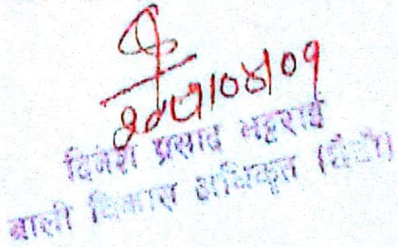 २०७७/०४/०१
दिनेश प्रसाद भट्टराई
बाली विकास अधिकृत (छैटौं)